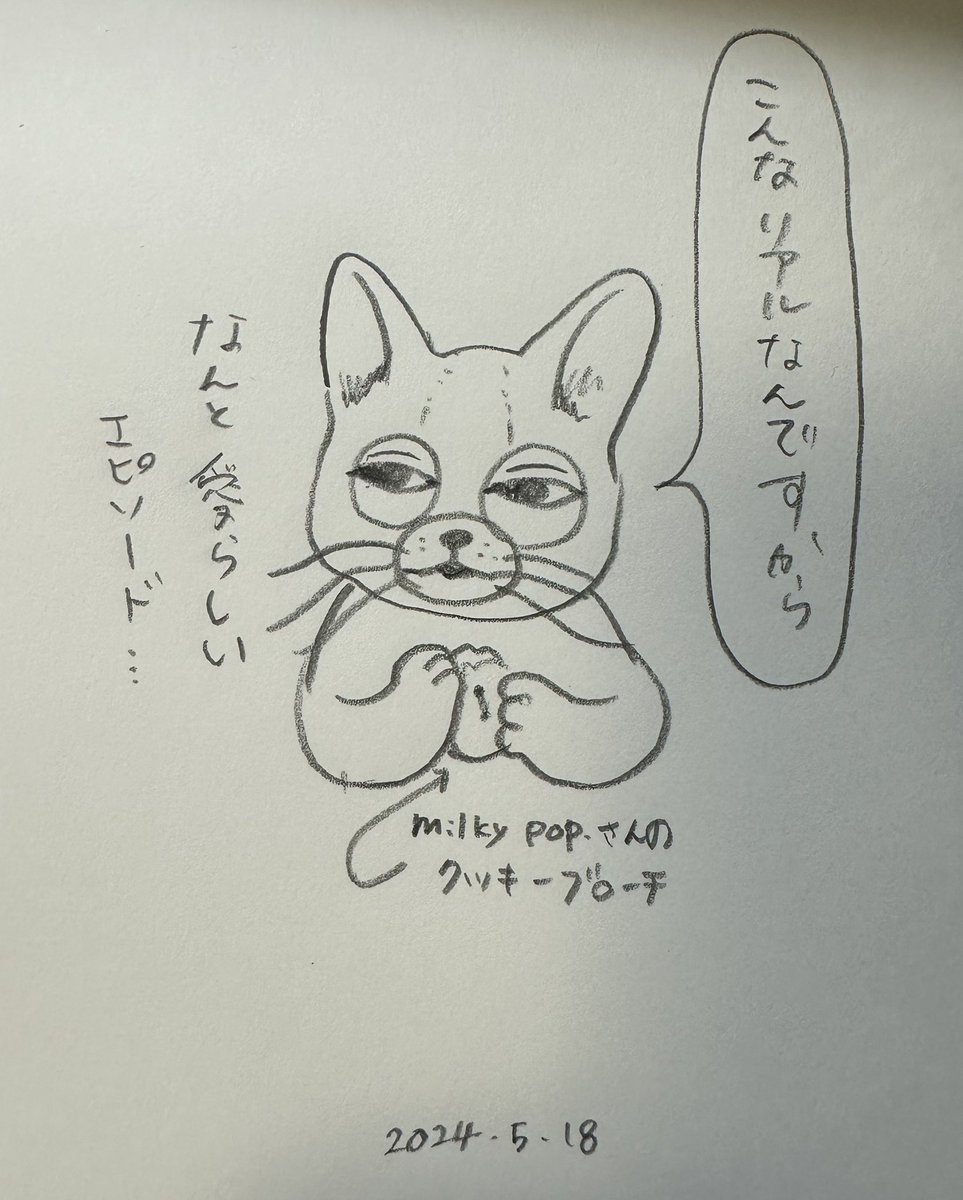 こんなリアルなんですから
なんと愛らしい
エピソード…
milky pop.さんの
クッキーブローチ
2024.5.18